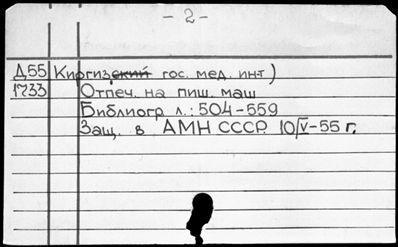 - 2 -
Д55 Киргизский гос. мед. инт)
1733 Отпеч. на пиш. маш
Библиогр л.: 504-559
Защ. в АМН СССР 10/V-55 г.